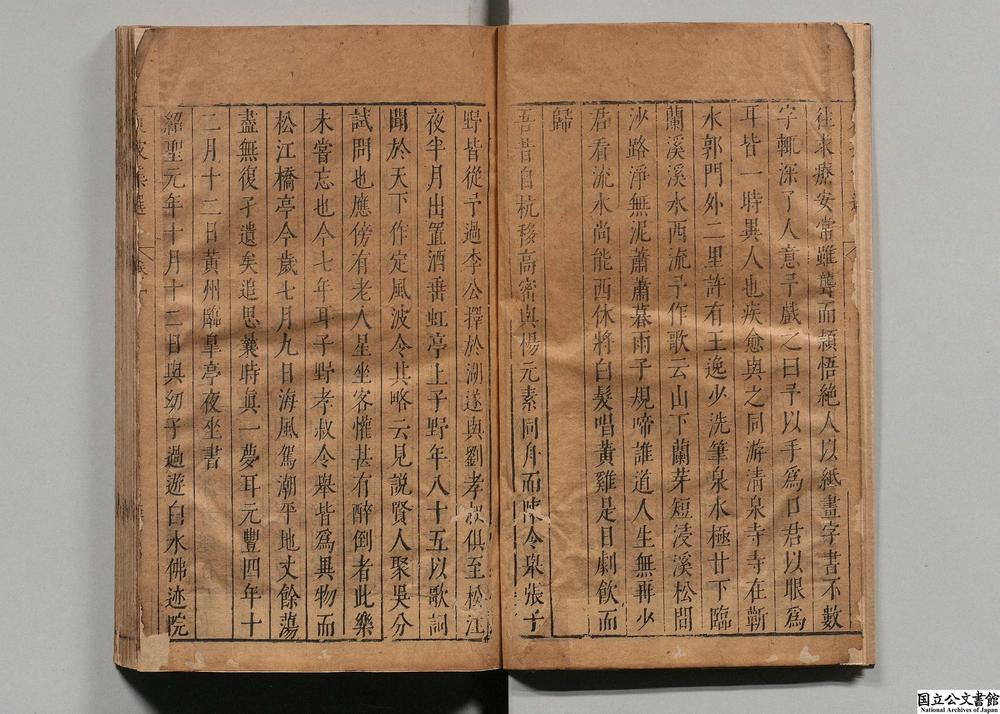 往求療安常雖聾而穎悟絶人以紙畫字書不數
字輒深了人意予戲之曰予以手爲口君以眼爲
耳皆一時異人也疾愈與之同游清泉寺寺在蘄
水郭門外二里許有王逸少洗筆泉水極甘下臨
蘭溪溪水西流予作歌云山下蘭芽短浸溪松間
沙路淨無泥蕭蕭暮雨子規啼誰道人生無再少
君看流水尚能西休將白髮唱黃雞是日劇飲而
歸
吾昔自杭移高密與楊元素同舟而陳令舉張子
野皆從予過李公擇於湖遂與劉孝叔俱至松江
夜半月出置酒垂虹亭上子野年八十五以歌詞
聞於天下作定風波令其略云見說賢人聚吳分
試問也應傍有老人星坐客懽甚有醉倒者此樂
未嘗忘也今七年耳子野孝叔令舉皆爲異物而
松江橋亭今歲七月九日海風駕潮平地丈餘蕩
盡無復孑遺矣追思曩時眞一夢耳元豐四年十
二月十二日黃州臨皐亭夜坐書
紹聖元年十月十二日與幼子過遊白水佛迹院
東坡集選
国立公文書館
National Archives of Japan